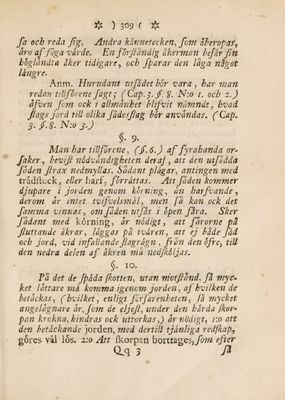 ☼ ) 309 ( ☼
sa och reda sig. Andra kännetecken, som åberopas,
äro af föga värde. En förståndig åkerman besår sin
höglända åker tidigare, och sparar den låga något
längre.
Anm. Hurudant utsädet bör vara, har man
redan tilförene sagt; (Cap. 3. §. 8. N:o 1. och 2.)
äfven som ock i allmänhet blifvit nämndt, hvad
slags jord til olika sädesslag bör användas. (Cap.
3. §. 8. N:o 3.)
§. 9.
Man har tilförene, (§. 6.) af fyrahanda or-
saker, bevist nödvändigheten deraf, att den utsådda
säden strax nedmyllas. Sådant plägar, antingen med
trädstock, eller harf, förrättas. Att säden kommer
djupare i jorden genom körning, än harfvande,
derom är intet tvifvelsmål, men så kan ock det
samma vinnas, om säden utsås i öpen fåra. Sker
sådant med körning, är nödigt, att fårorne på
sluttande åkrar, läggas på tvären, att ej både säd
och jord, vid infallande slagrägn, från den öfre, till
den nedra delen af åkren må nedsköljas.
§. 10.
På det de späda skotten, utan motstånd, så myc-
ket lättare må komma igenom jorden, af hvilken de
betäckas, (hvilket, enligt erfarenheten, så mycket
angelägnare är, som de eljest, under den hårda skor-
pan krokna, hindras och uttorkas,) är nödigt, 1:0 att
den betäckande jorden, med dertil tjänliga redskap,
göres väl lös. 2:0 Att skorpan borttages, som efter
Qq 3 så